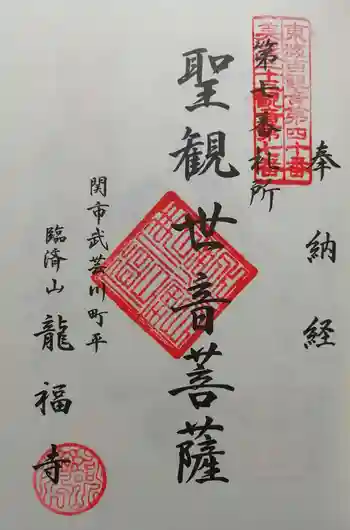 奉納経
東海百観音第四十番
第七番札所
聖観世音菩薩
関市武芸川町平
臨済山龍福寺